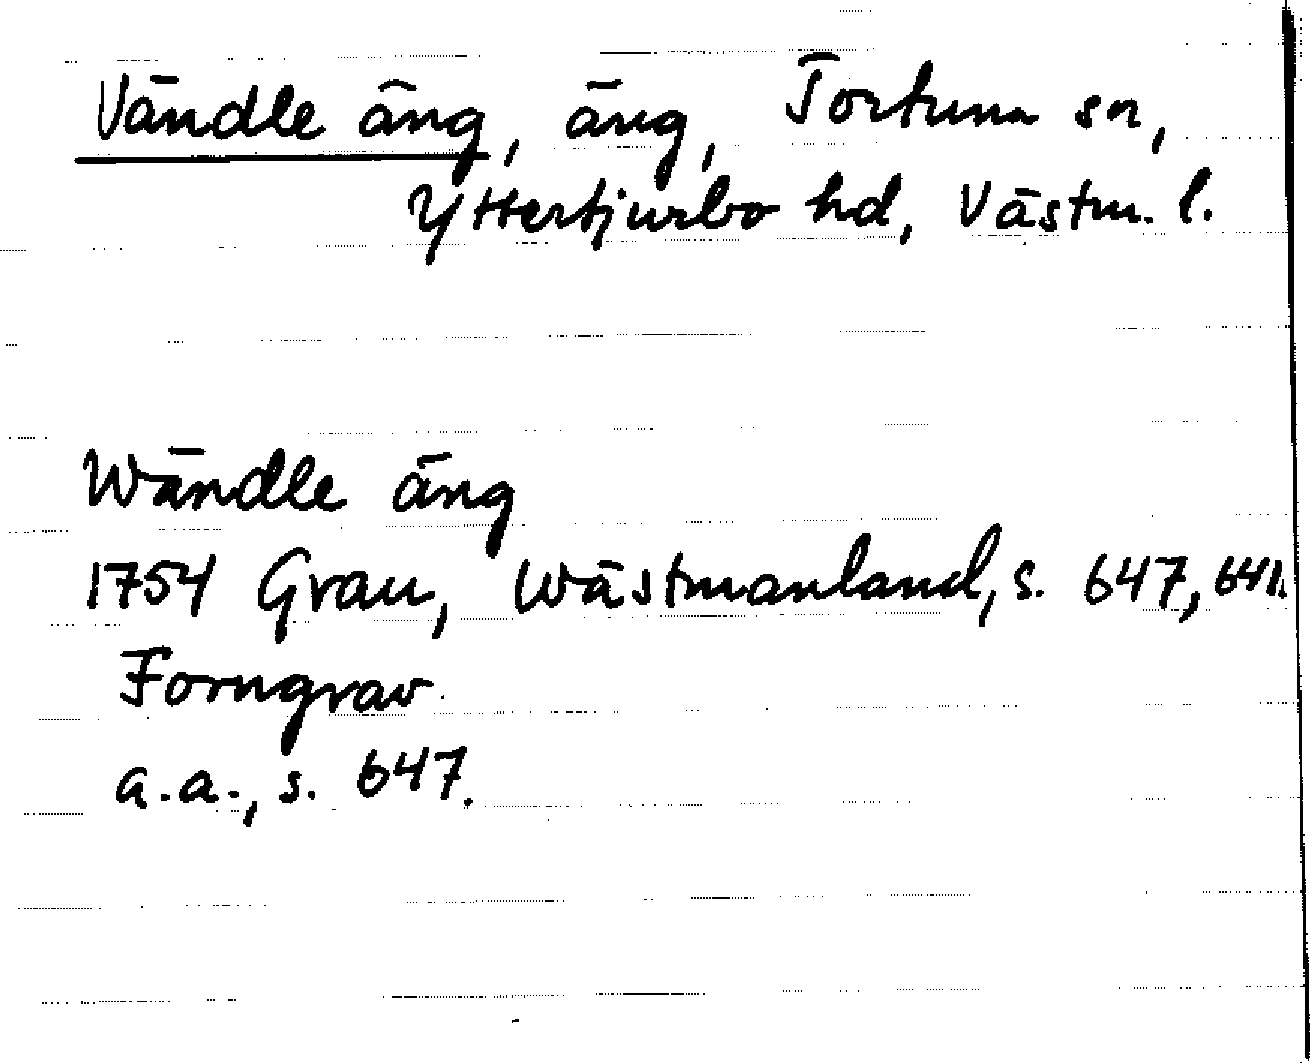 Vändle äng, äng, Tortuna sn,
Yttertjurbo hd, Västm. l.
Wändle äng
1754 Grau, Wästmanland, s. 647, 641.
Forngrav.
a.a., s. 647.